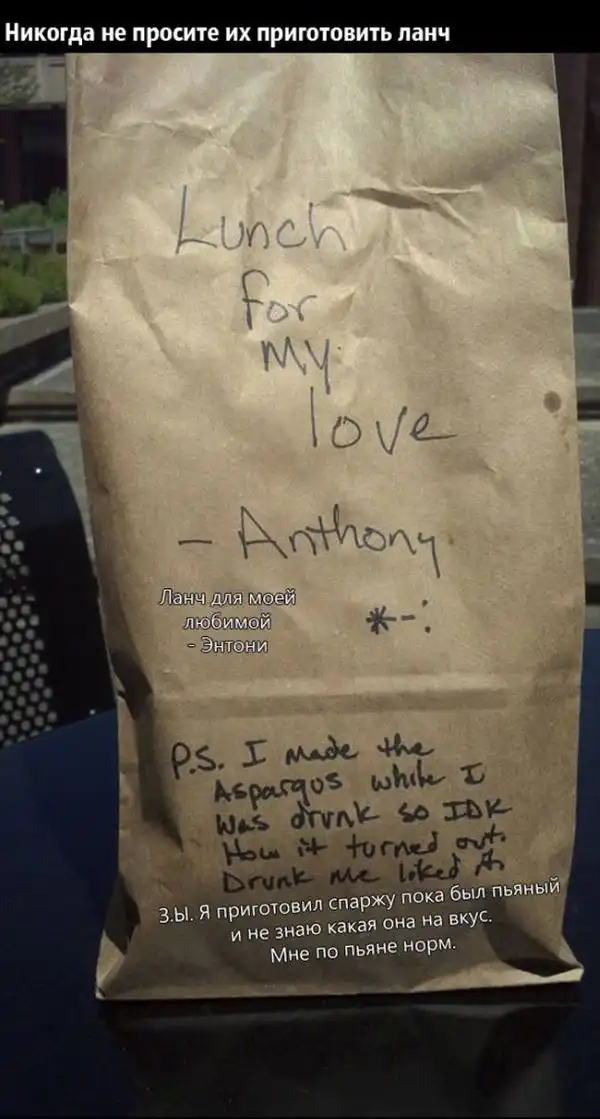 Никогда не просите их приготовить ланч
Lunch
for
my
love
- Anthony
*-:
Ланч для моей
любимой
- Энтони
P.S. I made the
Aspargus while I
was drunk so IDK
How it turned out.
Drunk me liked it
З.Ы. Я приготовил спаржу пока был пьяный
и не знаю какая она на вкус.
Мне по пьяне норм.